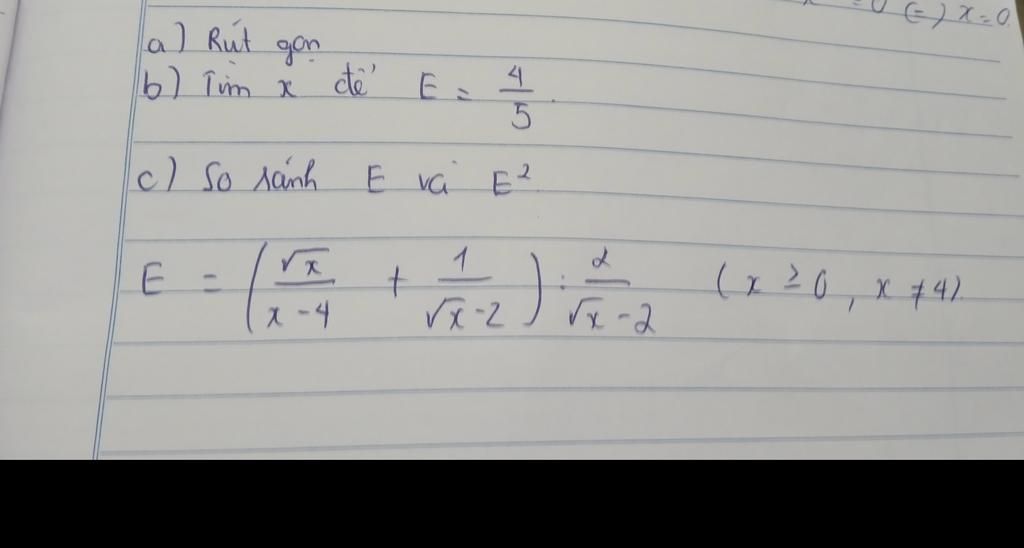 = 0 (=) x = 0
a) Rút gọn
b) Tìm x để E = 4/5.
c) So sánh E và E²
E = (√x/(x - 4) + 1/(√x - 2)) : 2/(√x - 2) (x ≥ 0, x ≠ 4).